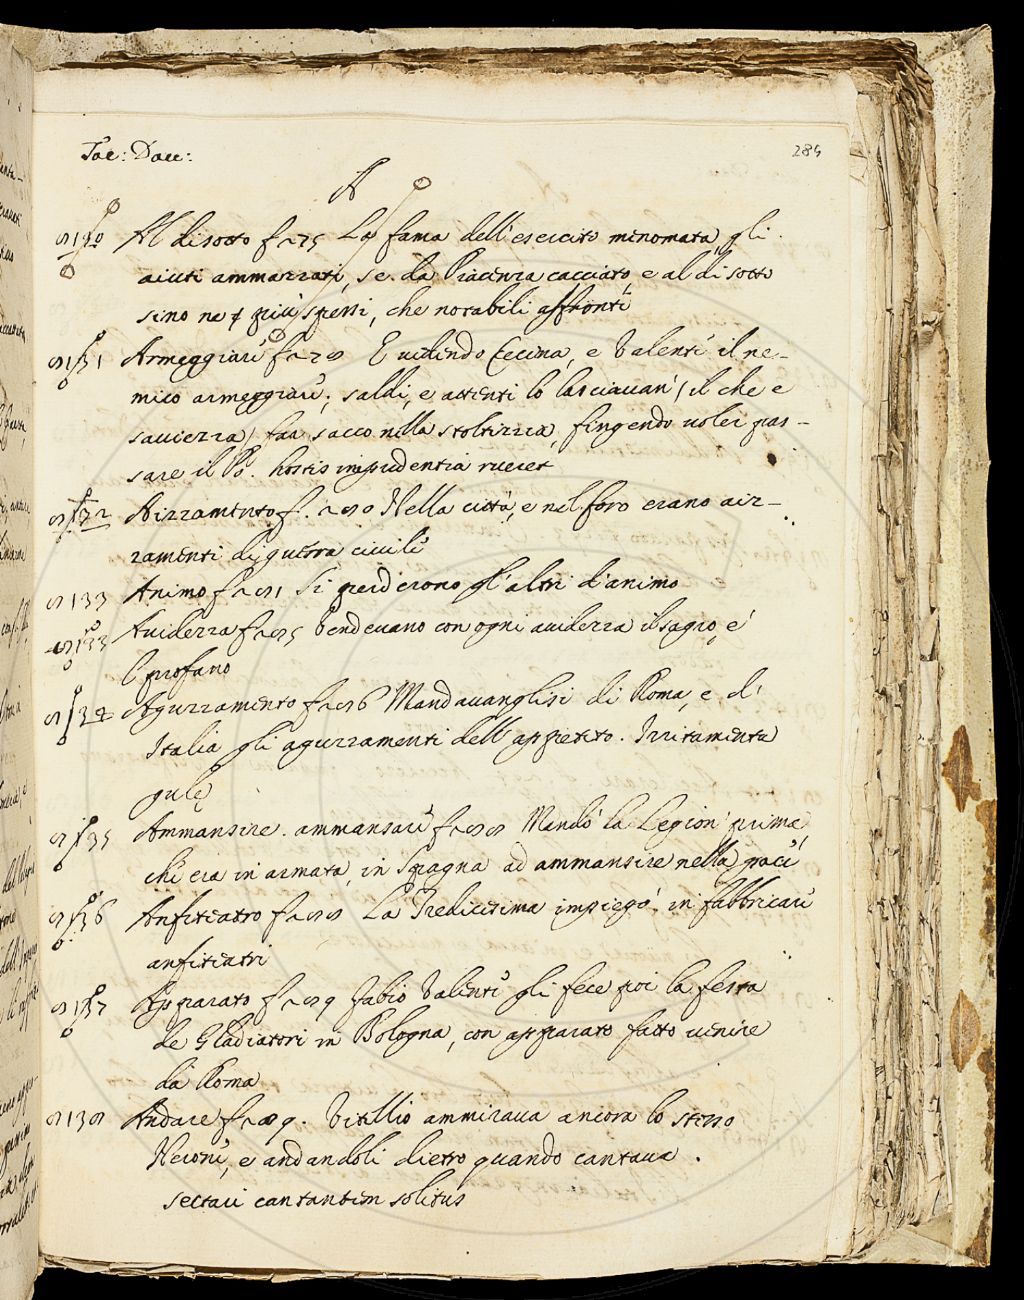 Tac: Dau:
284
A
8130 Al disotto f 275 La fama dell'esercito menomata, gli
aiuti ammazzati, se da Piacenza cacciato e al di sotto
sino ne più spessi, che notabili affronti
8131 Armeggiare f 278 E vedendo Cecina, e Valente il ne-
mico armeggiare; saldi, e attenti lo lasciavan' (il che e
saviezza) far sacco nella stoltizzia, fingendo voler pas-
sare il Po. hostis imprudentia rueret
8132 Aizzamento f. 280 Nella città, e nel foro erano aiz-
zamenti di guerra civile
8133 Animo f 281 Si perderono gl'altri d'animo
8133 Avidezza f 285 Vendevano con ogni avidezza il sagro, e'
l profano
8134 Aguzzamento f 286 Mandavanglisi di Roma, e d'
Italia gli aguzzamenti dell'appetito. Irritamenta
gulę
8135 Ammansire. ammansare f 288 Mandò la Legion' prima
ch'era in armata, in Spagna ad ammansire nella pace
8136 Anfiteatro f 288 La Tredicesima impiegò in fabbricare
anfiteatri
8137 Apparato f 289 Fabio Valente gli fece poi la festa
de Gladiatori in Bologna, con apparato fatto venire
da Roma
8138 Andare f 289. Vitellio ammirava ancora lo stesso
Nerone, e andandoli dietro quando cantava.
sectari cantantem solitus